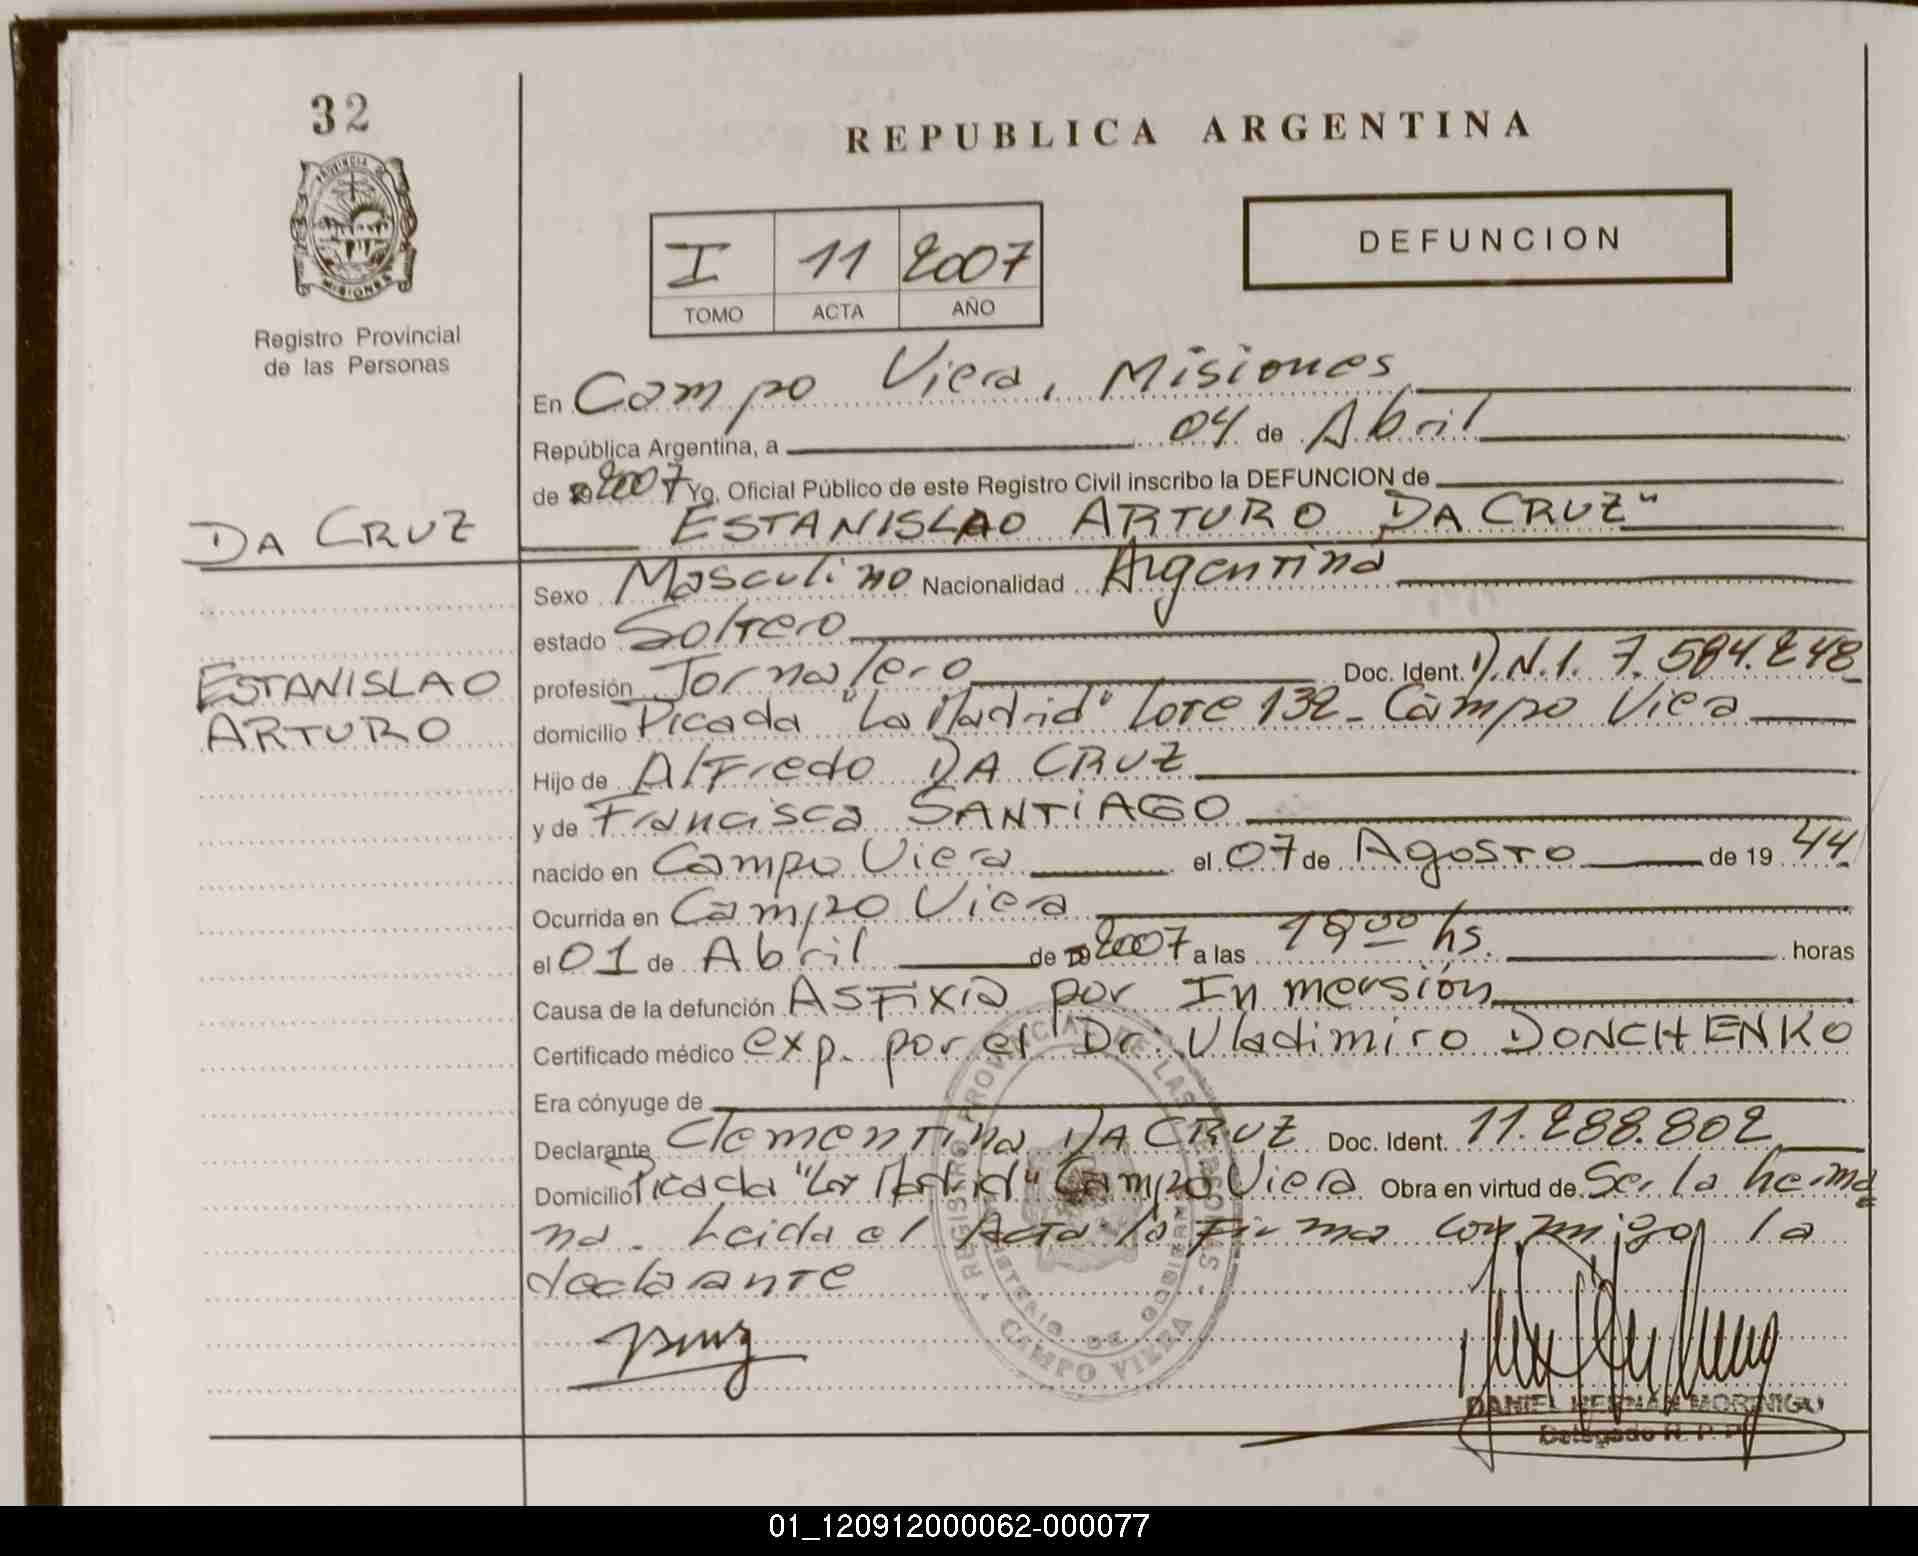 32
PROVINCIA DE
MISIONES
Registro Provincial
de las Personas
REPUBLICA ARGENTINA
I 11 2007
TOMO ACTA AÑO
DEFUNCION
En Campo Viera, Misiones
República Argentina, a 04 de Abril
de 2007 Yo, Oficial Público de este Registro Civil inscribo la DEFUNCION de
ESTANISLAO ARTURO DA CRUZ"
DA CRUZ
ESTANISLAO
ARTURO
Sexo Masculino Nacionalidad Argentina
estado Soltero
profesión Jornalero Doc. Ident. D.N.I. 7.584.248
domicilio Picada "La Madrid" Lote 132 - Campo Viera
Hijo de Alfredo DA CRUZ
y de Francisca SANTIAGO
nacido en Campo Viera el 07 de Agosto de 19 44.
Ocurrida en Campo Viera
el 01 de Abril de 2007 a las 18 00 hs. horas
Causa de la defunción Asfixia por Inmersión
Certificado médico exp. por el Dr. Vladimiro DONCHENKO
Era cónyuge de
Declarante Clementina DA CRUZ Doc. Ident. 11.288.802
Domicilio Picada "La Madrid" Campo Viera Obra en virtud de Ser la herma
na. Leida el Acta la Firma conmigo la
declarante
REGISTRO PROVINCIAL DE LAS PERSONAS
MINISTERIO DE GOBIERNO
CAMPO VIERA
DANIEL HERNAN MORINIGO
Delegado R. P. P.
01_120912000062-000077